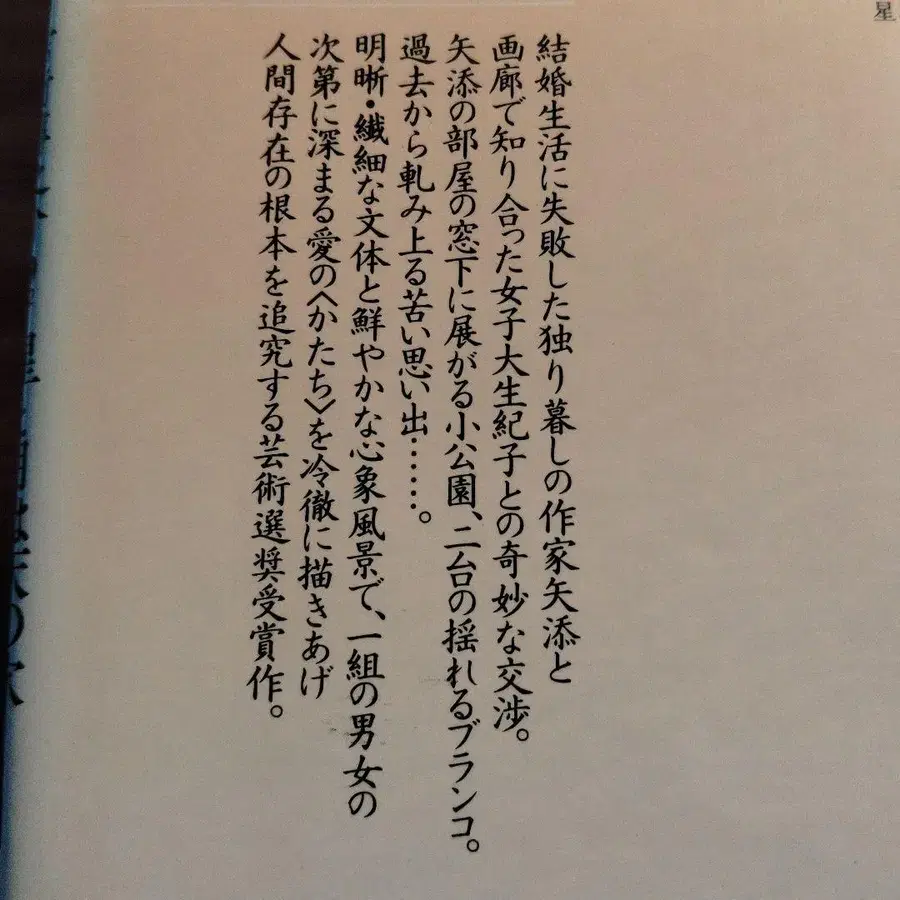 結婚生活に失敗した独り暮しの作家矢添と
画廊で知り合った女子大生紀子との奇妙な交渉。
矢添の部屋の窓下に展がる小公園、二台の揺れるブランコ。
過去から軋み上る苦い思い出……。
明晰・繊細な文体と鮮やかな心象風景で、一組の男女の
次第に深まる愛の〈かたち〉を冷徹に描きあげ
人間存在の根本を追究する芸術選奨受賞作。
星